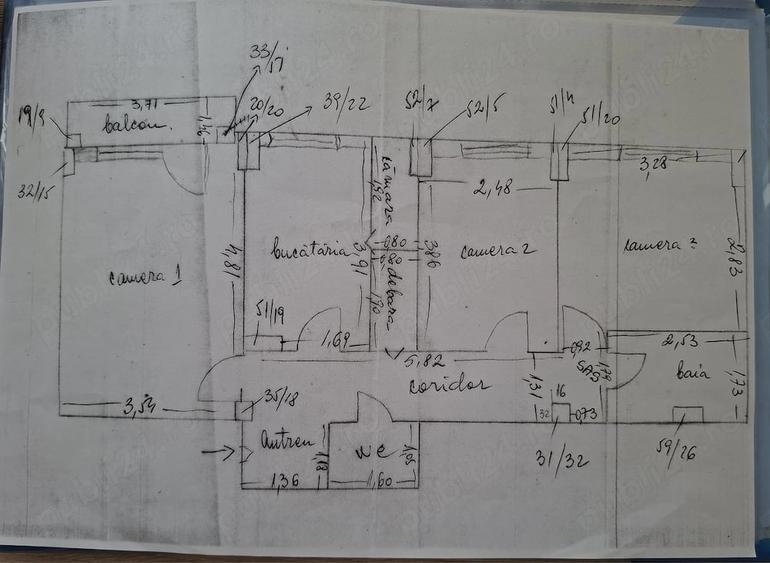 33/51
3,71
20/20
39/22
52/7
52/5
51/4
51/20
19/9
balcon
1,16
32/15
cămara
1,92
2,48
3,28
4,81
bucătăria
3,91
0,80
3,86
camera 2
camera 3
2,83
camera 1
debara
1,90
51/19
1,69
5,82
0,92
SAS
1,79
2,53
baia
1,73
coridor
1,31
16
32
0,73
3,54
35/18
31/32
59/26
Antreu
1,18
WC
1,05
1,36
1,60